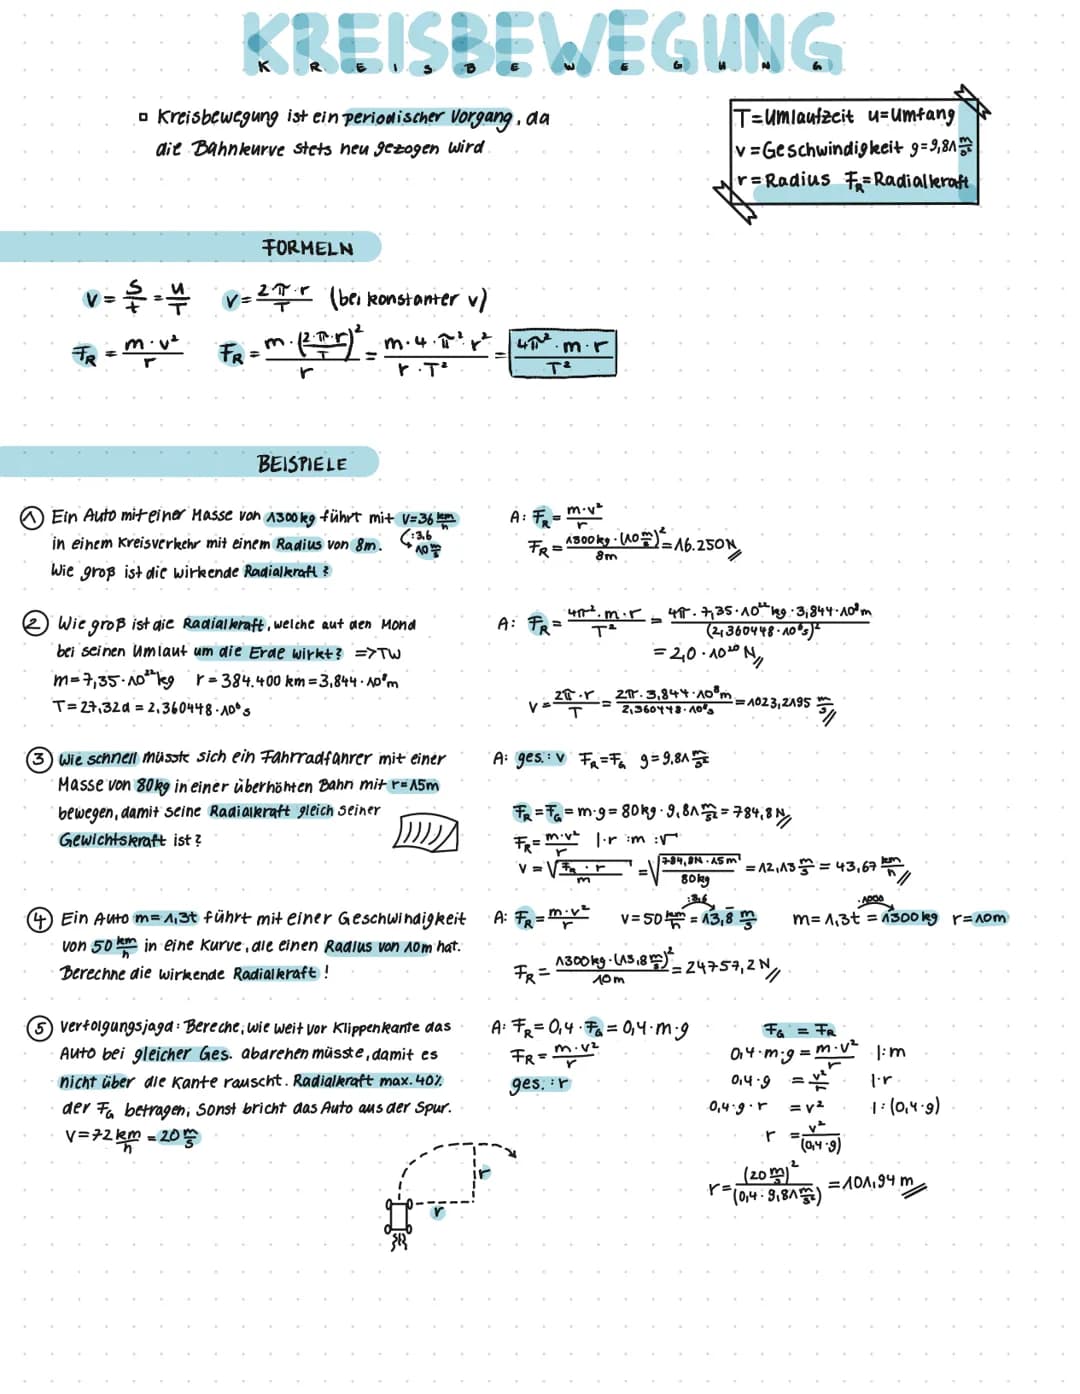 KREISBEWEGUNG
K R E I S B E W E G U N G
▫ Kreisbewegung ist ein periodischer Vorgang, da
die Bahnkurve stets neu gezogen wird
T=Umlaufzeit u=Umfang
v=Geschwindigkeit g=9,81 m/s²
r=Radius F_R=Radialkraft
FORMELN
v = s/t = u/T v = 2π·r/T (bei konstanter v)
F_R = m·v²/r F_R = m·(2·π·r/T)²/r = m·4·π²·r²/r·T² = 4π²·m·r/T²
BEISPIELE
① Ein Auto mit einer Masse von 1300kg führt mit v=36 km/h
:3,6
10 m/s
in einem Kreisverkehr mit einem Radius von 8m.
Wie groß ist die wirkende Radialkraft?
A: F_R = m·v²/r
F_R = 1300kg·(10 m/s)²/8m = 16.250N
② Wie groß ist die Radialkraft, welche auf den Mond
bei seinen Umlaut um die Erde wirkt? =>TW
m=7,35·10²²kg r=384.400 km=3,844·10⁸m
T=27,32d=2,360448·10⁶s
A: F_R = 4π²·m·r/T² = 4π·7,35·10²²kg·3,844·10⁸m/(2,360448·10⁶s)²
=2,0·10²⁰N
v = 2π·r/T = 2π·3,844·10⁸m/2,360448·10⁶s = 1023,2195 m/s
③ Wie schnell müsste sich ein Fahrradfahrer mit einer
Masse von 80kg in einer überhöhten Bahn mit r=15m
bewegen, damit seine Radialkraft gleich seiner
Gewichtskraft ist?
A: ges.: v F_R=F_G g=9,81 m/s²
F_R=F_G=m·g=80kg·9,81 m/s²=784,8N
F_R = m·v²/r |·r :m :√
v = √(F_R·r/m) = √(784,8N·15m/80kg) = 12,13 m/s = 43,67 km/h
④ Ein Auto m=1,3t führt mit einer Geschwindigkeit
von 50 km/h in eine Kurve, die einen Radius von 10m hat.
Berechne die wirkende Radialkraft!
:3,6 ·1000
A: F_R = m·v²/r v=50 km/h = 13,8̅ m/s m=1,3t=1300kg r=10m
F_R = 1300kg·(13,8 m/s)²/10m = 24757,2N
⑤ Verfolgungsjagd: Bereche, wie weit vor Klippenkante das
Auto bei gleicher Ges. abarehen müsste, damit es
nicht über die Kante rauscht. Radialkraft max. 40%
der F_G betragen, sonst bricht das Auto aus der Spur.
v=72 km/h = 20 m/s
r
r
A: F_R=0,4·F_G=0,4·m·g
F_R = m·v²/r
ges.: r
F_G = F_R
0,4·m·g = m·v²/r |:m
0,4·g = v²/r |·r
0,4·g·r = v² |:(0,4·g)
r = v²/(0,4·g)
r = (20 m/s)²/(0,4·9,81 m/s²) = 101,94 m